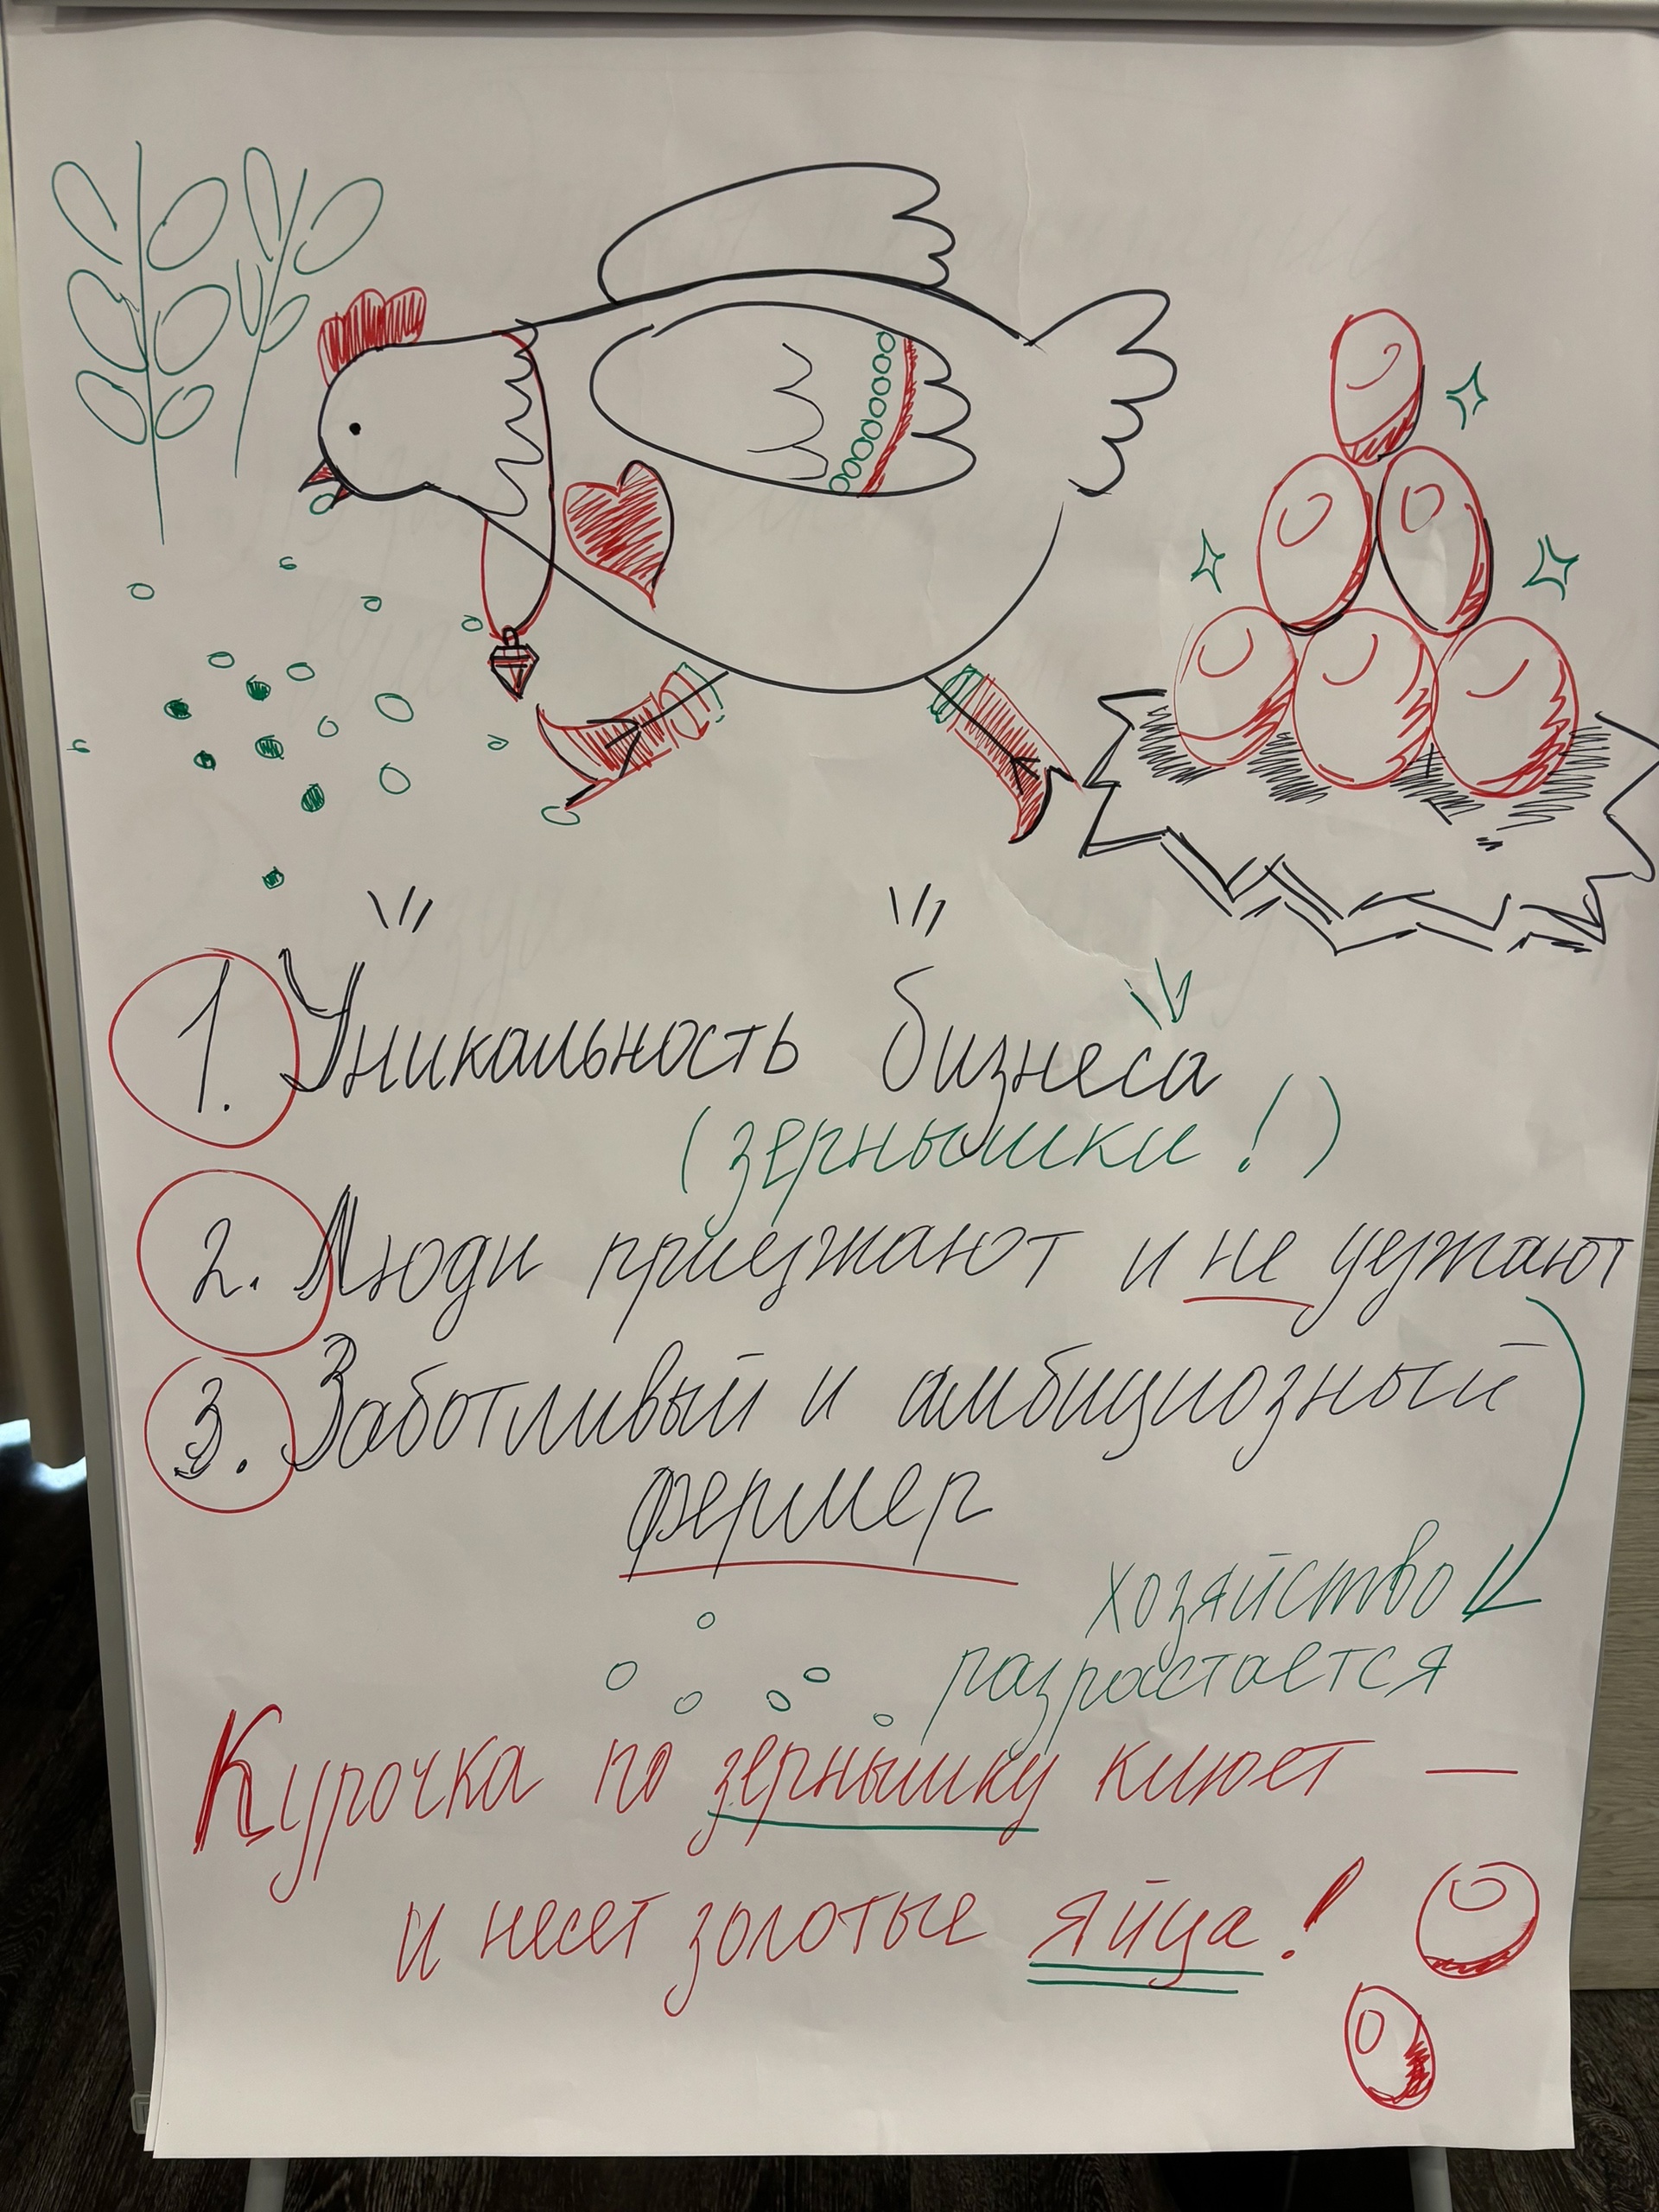 1. Уникальность бизнеса
(зернышки!)
2. Люди приезжают и не уезжают
3. Заботливый и амбициозный
фермер
хозяйство
разрастается
Курочка по зернышку клюет —
и несет золотые яйца!